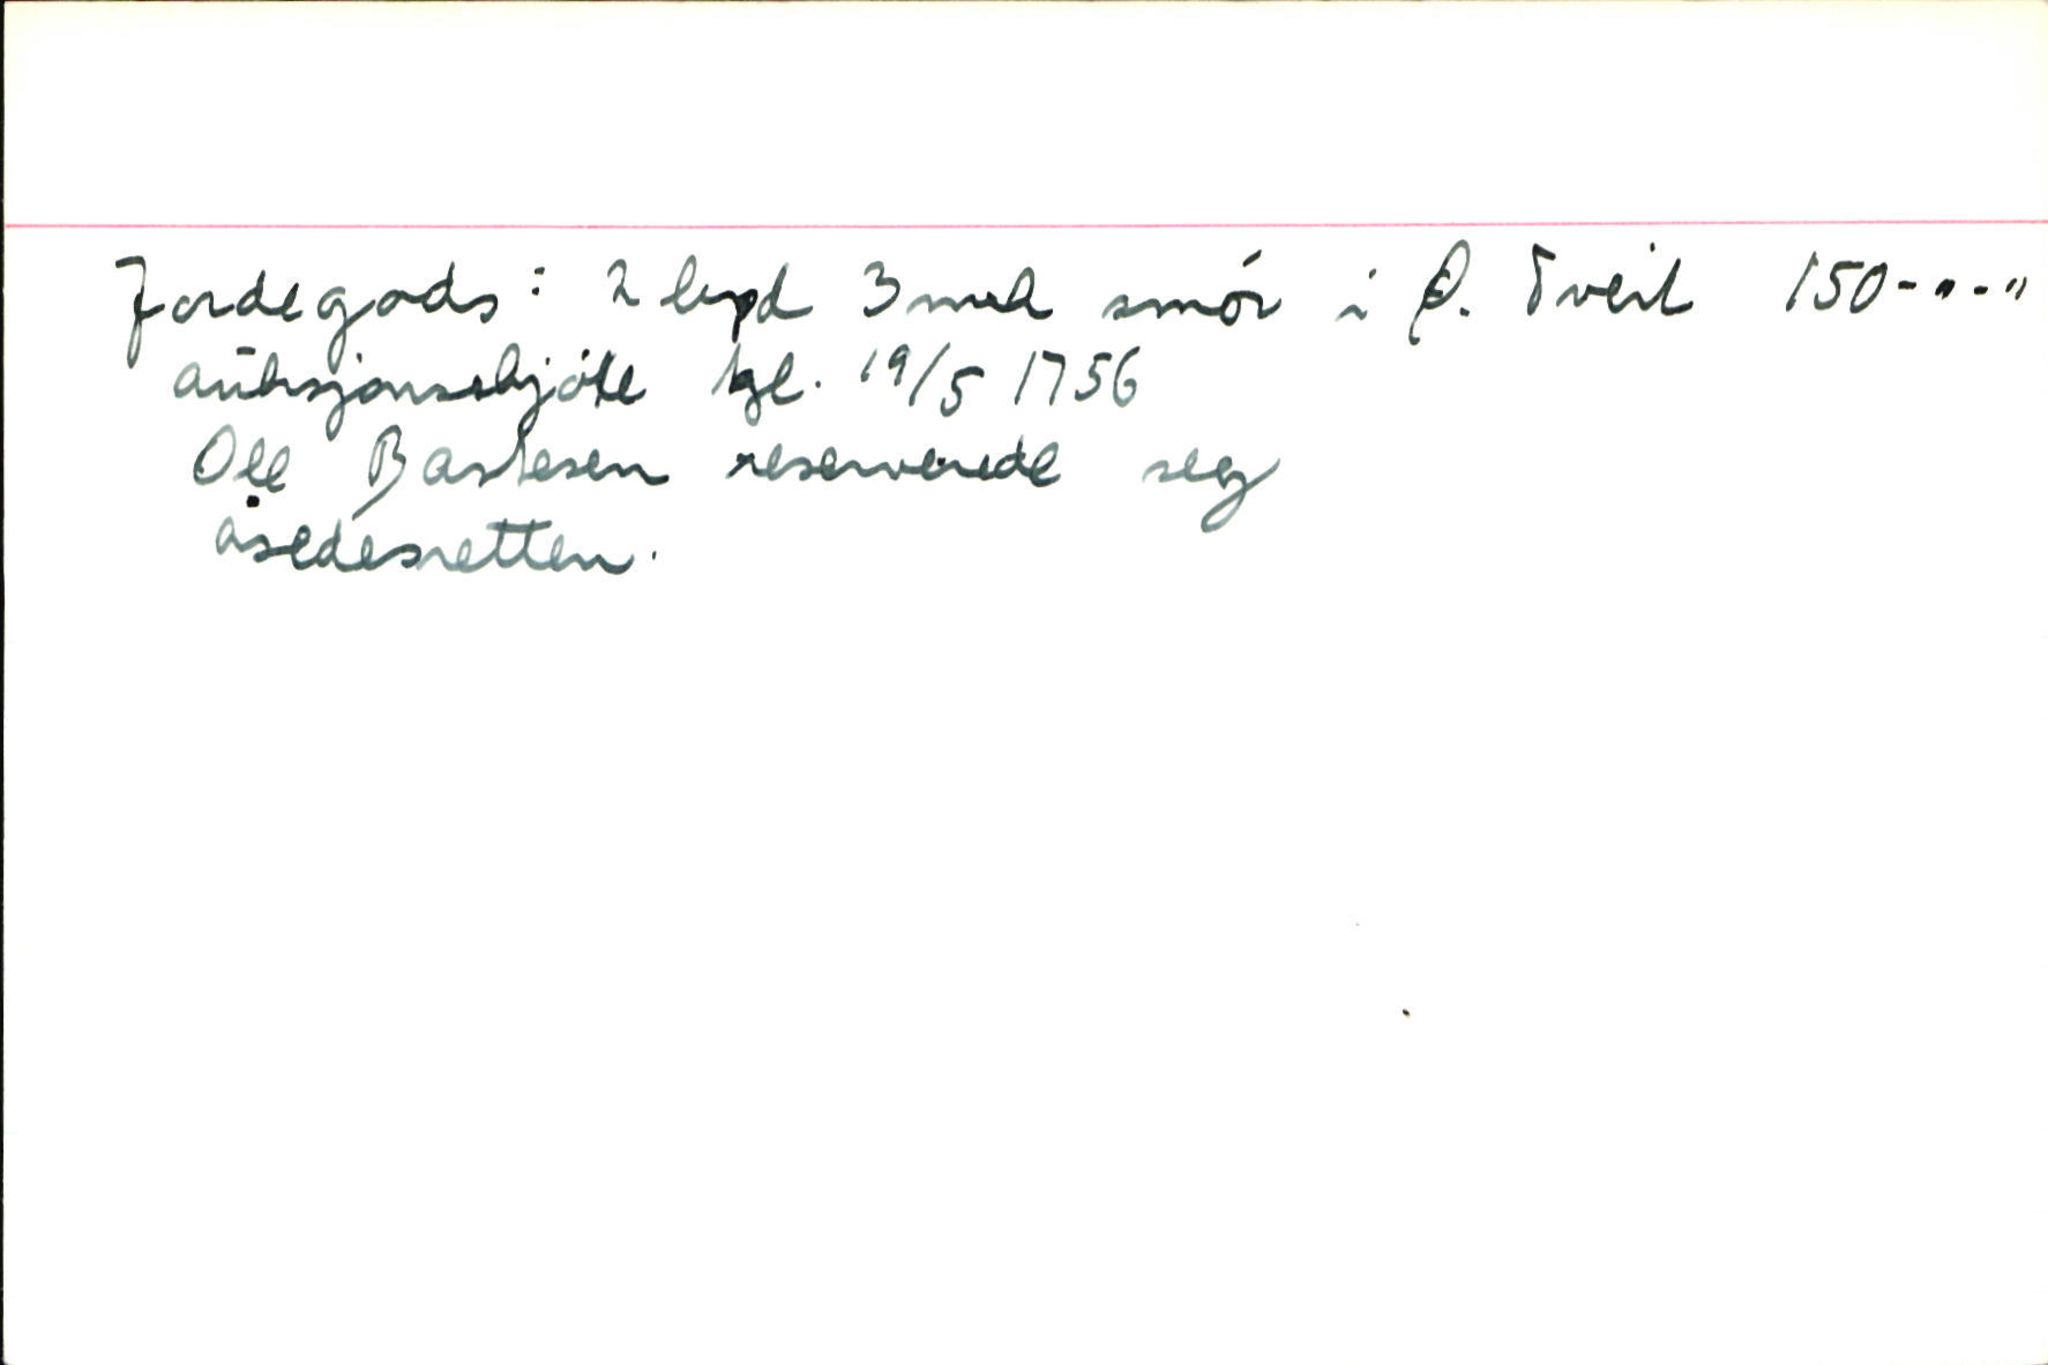 Jordegods: 2 lispd 3 mrk smór i Ø. Tveit 150-"-"
auksjonsskjöte tgl. 19/5 1756
Ole Bastesen reserverede seg
åsedesretten.